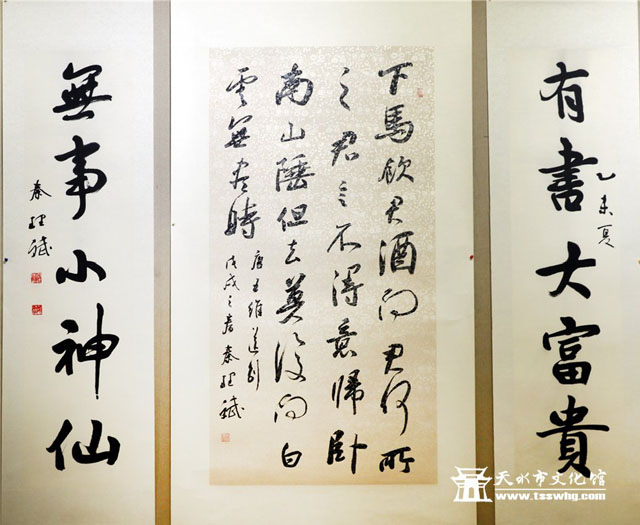 有書大富貴
乙未夏
下馬飲君酒問君何所
之君言不得意歸卧
南山陲但去莫復問白
雲無盡時
唐王維送別
戊戌之春秦理斌
無事小神仙
秦理斌
天水市文化馆
www.tsswhg.com